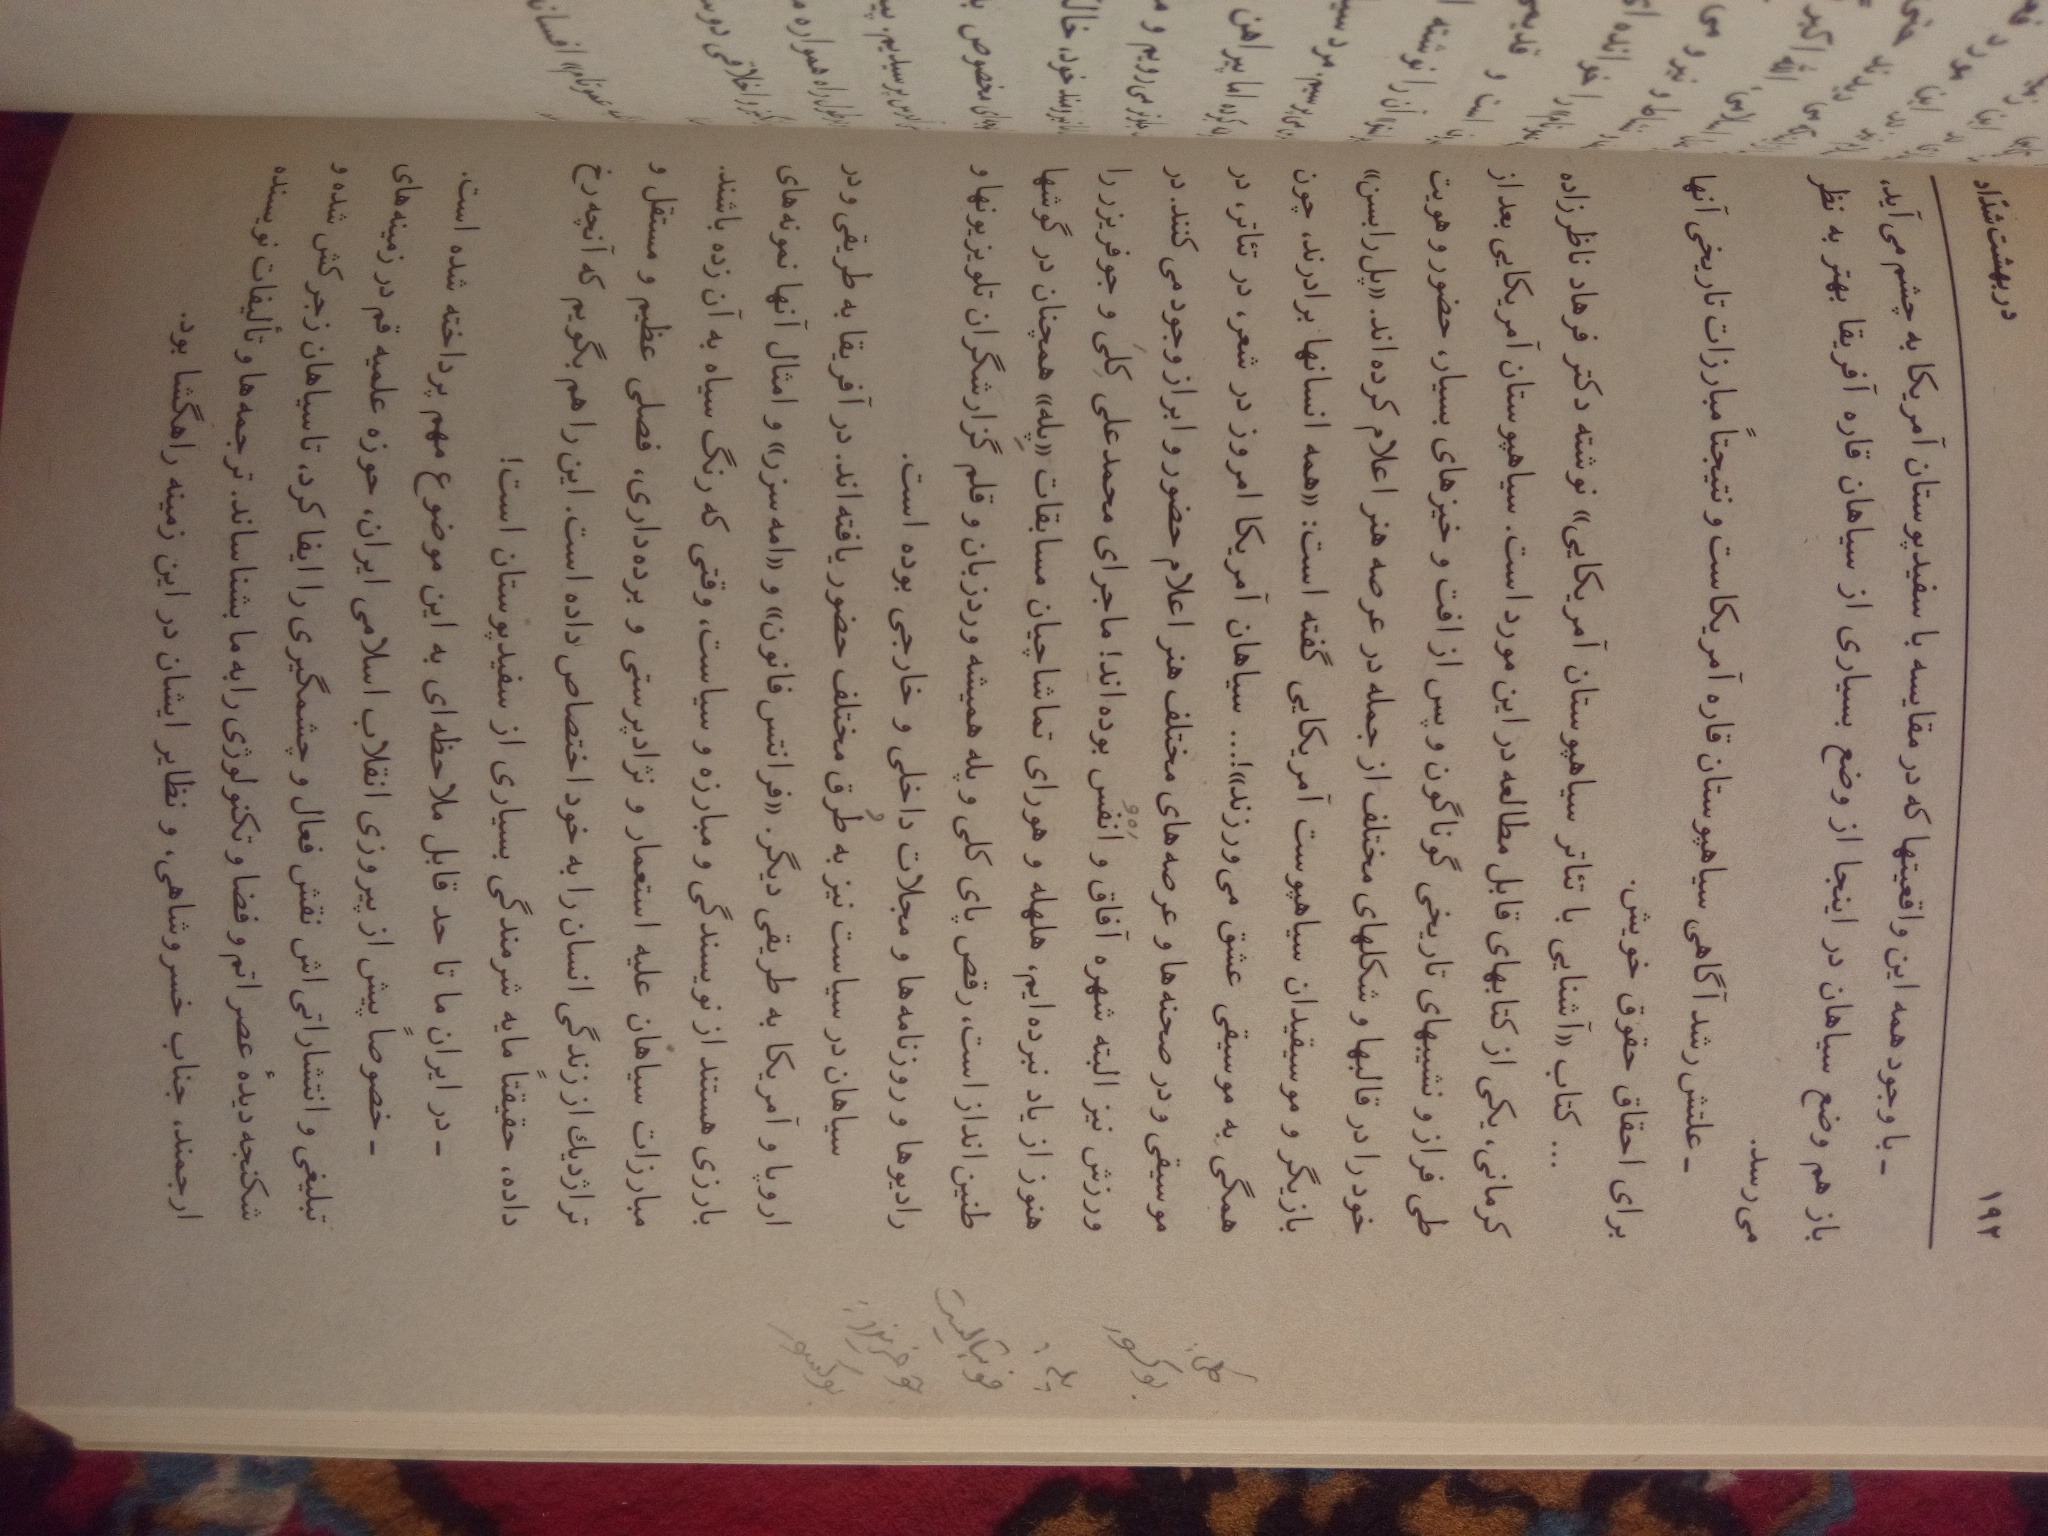 ۱۹۲
در بهشت شدّاد
ـ با وجود همه این واقعیتها که در مقایسه با سفیدپوستان آمریکا به چشم می‌آید،
باز هم وضع سیاهان در اینجا از وضع بسیاری از سیاهان قاره آفریقا بهتر به نظر
می‌رسد.
ـ علتش رشد آگاهی سیاهپوستان قاره آمریکاست و نتیجتاً مبارزات تاریخی آنها
برای احقاق حقوق خویش.
... کتاب «آشنایی با تئاتر سیاهپوستان آمریکایی» نوشته دکتر فرهاد ناظرزاده
کرمانی، یکی از کتابهای قابل مطالعه در این مورد است. سیاهپوستان آمریکایی بعد از
طی فراز و نشیبهای تاریخی گوناگون و پس از افت و خیزهای بسیار، حضور و هویت
خود را در قالبها و شکلهای مختلف از جمله در عرصه هنر اعلام کرده‌اند. «پل رابسن»
بازیگر و موسیقیدان سیاهپوست آمریکایی گفته است: «همه انسانها برادرند، چون
همگی به موسیقی عشق می‌ورزند»!... سیاهان آمریکا امروز در شعر، در تئاتر، در
موسیقی و در صحنه‌ها و عرصه‌های مختلف هنر اعلام حضور و ابراز وجود می‌کنند. در
ورزش نیز البته شهره آفاق و انفس بوده‌اند! ماجرای محمدعلی کِلَی و جوفریزر را
هنوز از یاد نبرده‌ایم، هلهله و هورای تماشاچیان مسابقات «پِله» همچنان در گوشها
طنین‌انداز است، رقص پای کلی و پله همیشه ورد زبان و قلم گزارشگران تلویزیونها و
رادیوها و روزنامه‌ها و مجلات داخلی و خارجی بوده است.
سیاهان در سیاست نیز به طُرق مختلف حضور یافته‌اند. در آفریقا به طریقی و در
اروپا و آمریکا به طریقی دیگر. «فرانتس فانون» و «امه سزر» و امثال آنها نمونه‌های
بارزی هستند از نویسندگی و مبارزه و سیاست، وقتی که رنگ سیاه به آن زده باشند.
مبارزات سیاهان علیه استعمار و نژادپرستی و برده‌داری، فصلی عظیم و مستقل و
تراژدیك از زندگی انسان را به خود اختصاص داده است. این را هم بگویم که آنچه رخ
داده، حقیقتاً مایه شرمندگی بسیاری از سفیدپوستان است!
ـ در ایران ما تا حد قابل ملاحظه‌ای به این موضوع مهم پرداخته شده است.
ـ خصوصاً پیش از پیروزی انقلاب اسلامی ایران، حوزه علمیه قم در زمینه‌های
تبلیغی و انتشاراتی‌اش نقش فعال و چشمگیری را ایفا کرد، تا سیاهان زجر کش شده و
شکنجه دیدهٔ عصر اتم و فضا و تکنولوژی را به ما بشناساند. ترجمه‌ها و تألیفات نویسنده
ارجمند، جناب خسروشاهی، و نظایر ایشان در این زمینه راهگشا بود.
کلی:
بوکسور
پله:
فوتبالیست
جوفریزر:
بوکسور